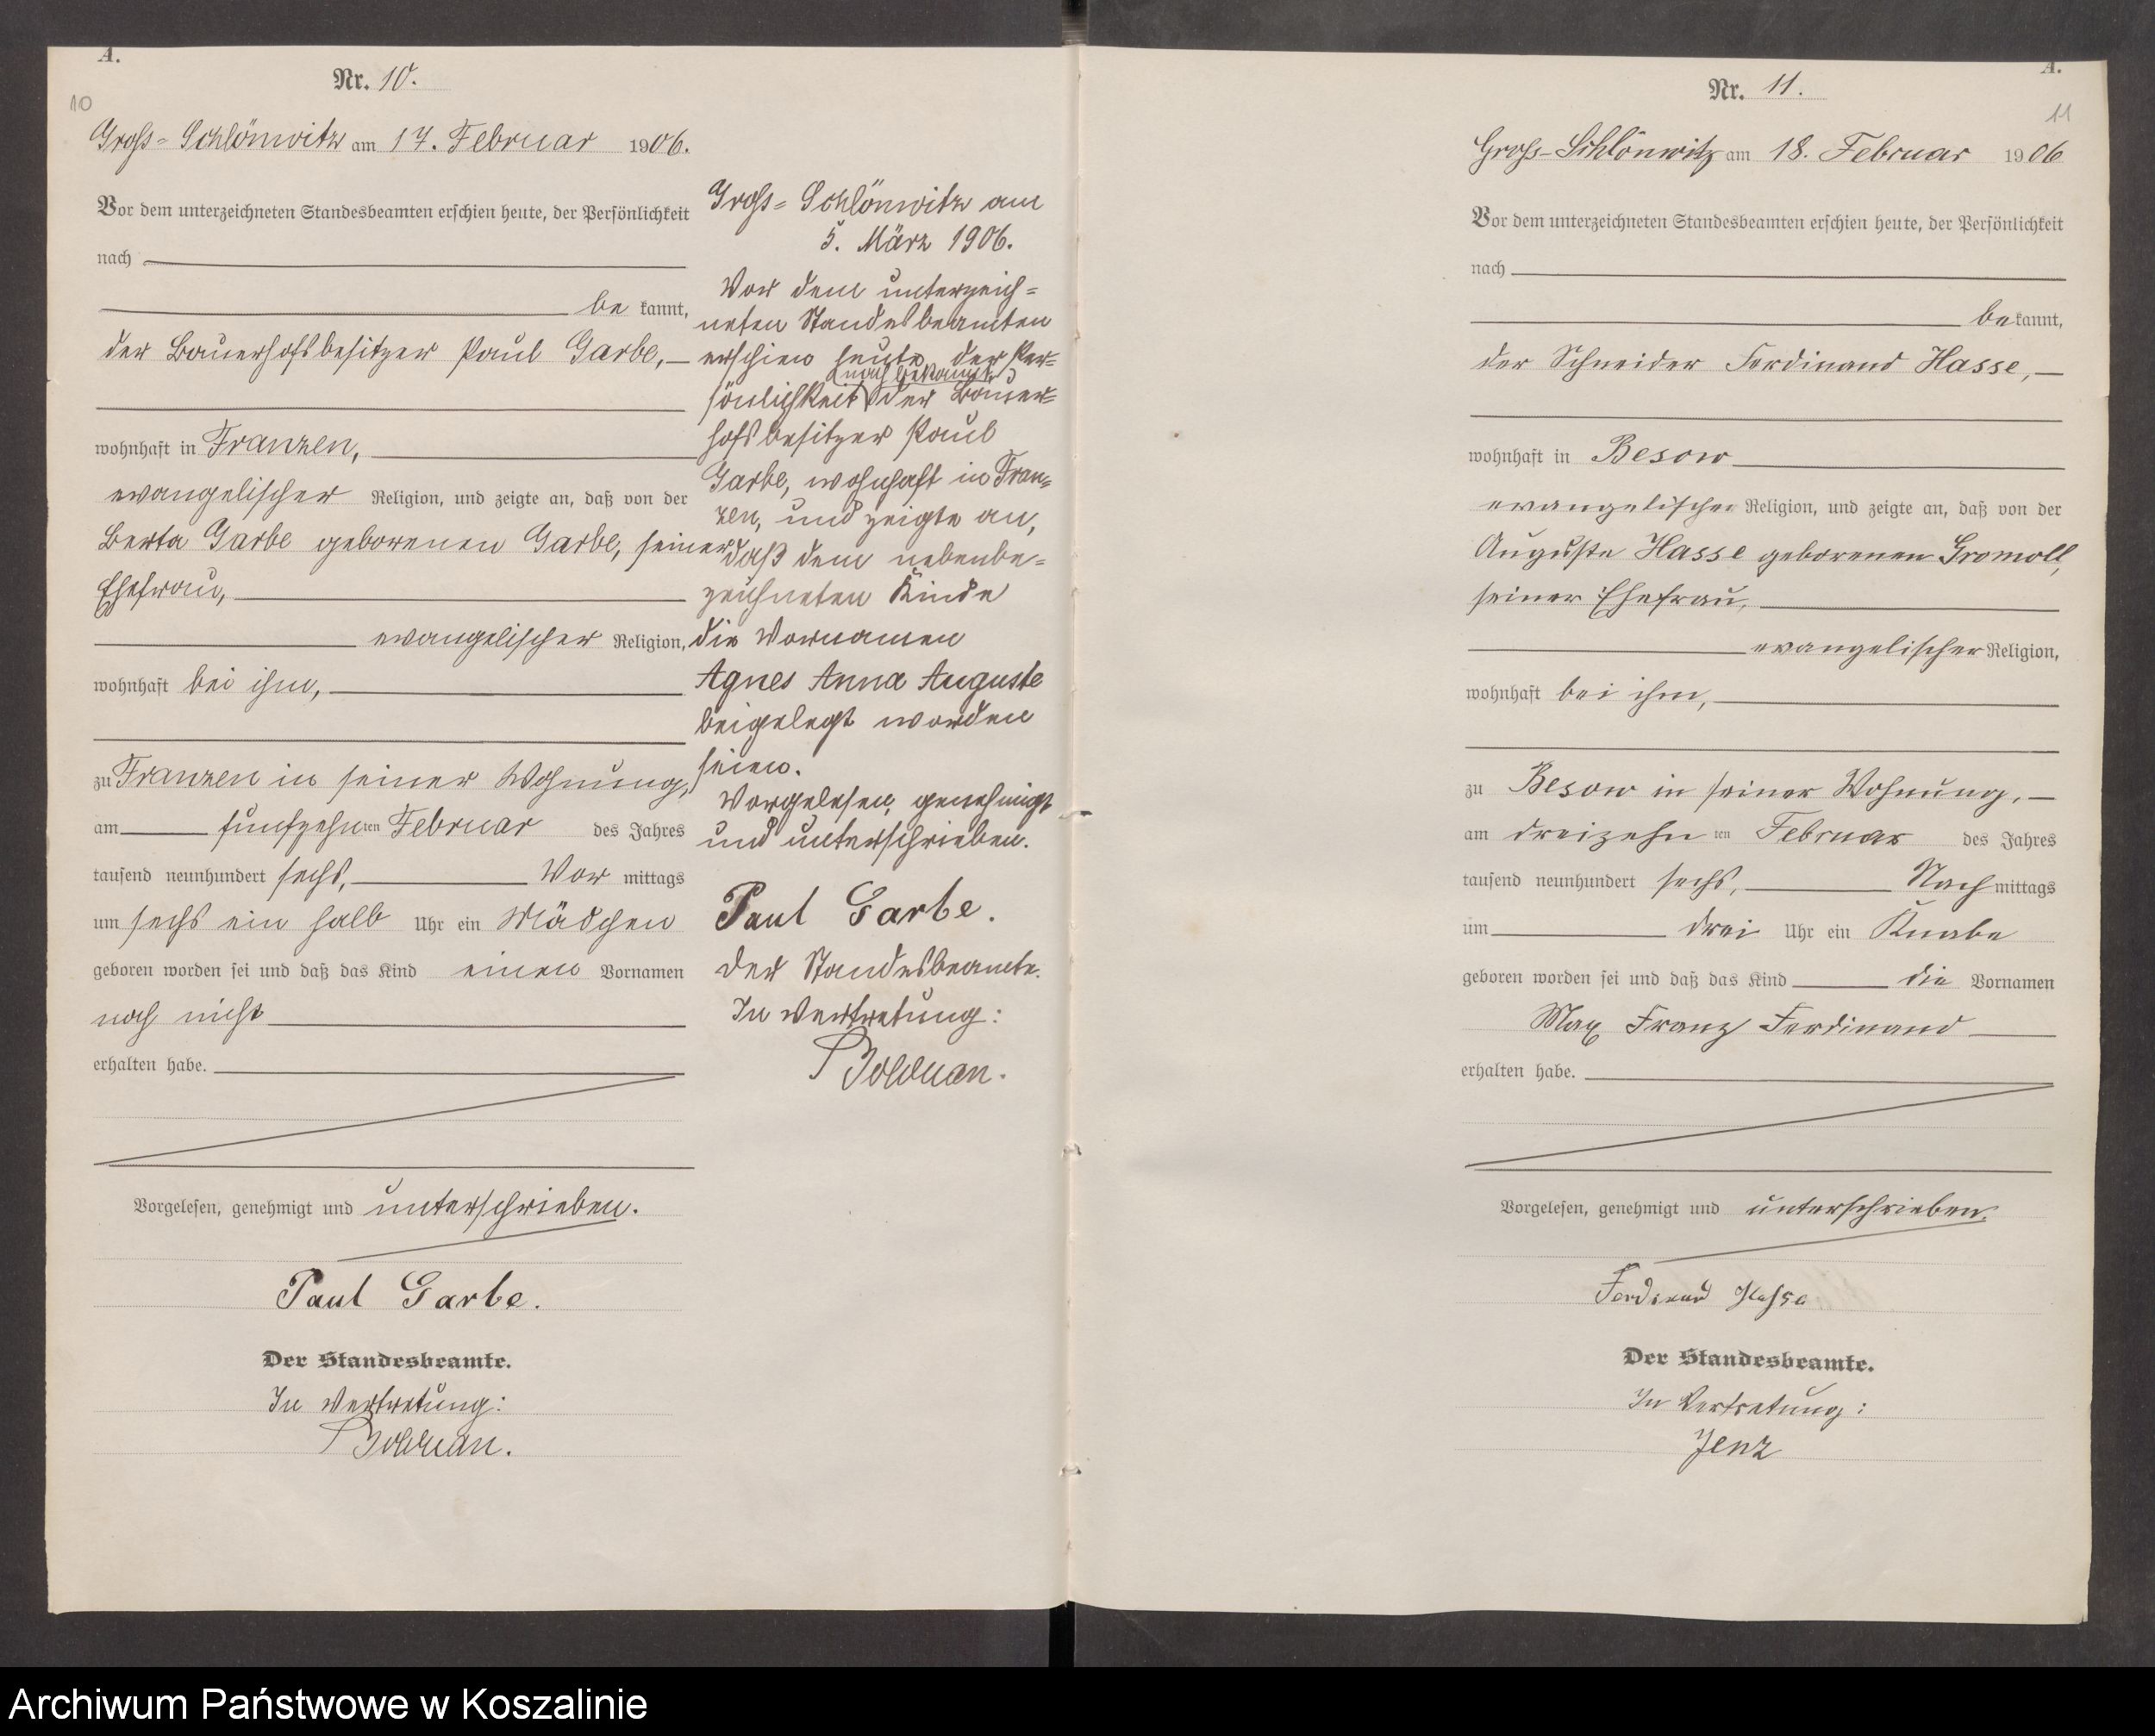 A.
Nr. 10.
10
Groß-Schlönwitz am 17. Februar 1906.
Vor dem unterzeichneten Standesbeamten erschien heute, der Persönlichkeit
nach
be kannt,
der Bauerhofsbesitzer Paul Garbe,
wohnhaft in Franzen,
evangelischer Religion, und zeigte an, daß von der
Berta Garbe geborenen Garbe, seiner
Ehefrau,
evangelischer Religion,
wohnhaft bei ihm,
zu Franzen in seiner Wohnung,
am fünfzehn ten Februar des Jahres
tausend neunhundert sechs, Vor mittags
um sechs ein halb Uhr ein Mädchen
geboren worden sei und daß das Kind einen Vornamen
noch nicht
erhalten habe.
Vorgelesen, genehmigt und unterschrieben.
Paul Garbe.
Der Standesbeamte.
In Vertretung:
Bolduan.
Groß-Schlönwitz am
5. März 1906.
Vor dem unterzeich=
neten Standesbeamten
erschien heute, der Per=
nach bekannt,
sönlichkeit der Bauer=
hofsbesitzer Paul
Garbe, wohnhaft in Fran=
zen, und zeigte an,
daß dem nebenbe=
zeichneten Kinde
die Vornamen
Agnes Anna Auguste
beigelegt worden
seien.
Vorgelesen, genehmigt
und unterschrieben.
Paul Garbe.
Der Standesbeamte.
In Vertretung:
Bolduan.
A.
Nr. 11.
11
Groß-Schlönwitz am 18. Februar 1906
Vor dem unterzeichneten Standesbeamten erschien heute, der Persönlichkeit
nach
be kannt,
der Schneider Ferdinand Hasse,
wohnhaft in Besow
evangelischer Religion, und zeigte an, daß von der
Auguste Hasse geborenen Gromoll,
seiner Ehefrau,
evangelischer Religion,
wohnhaft bei ihm,
zu Besow in seiner Wohnung,
am dreizehn ten Februar des Jahres
tausend neunhundert sechs, Nach mittags
um drei Uhr ein Knabe
geboren worden sei und daß das Kind die Vornamen
Max Franz Ferdinand
erhalten habe.
Vorgelesen, genehmigt und unterschrieben.
Ferdinand Hasse
Der Standesbeamte.
In Vertretung:
Jenz
Archiwum Państwowe w Koszalinie